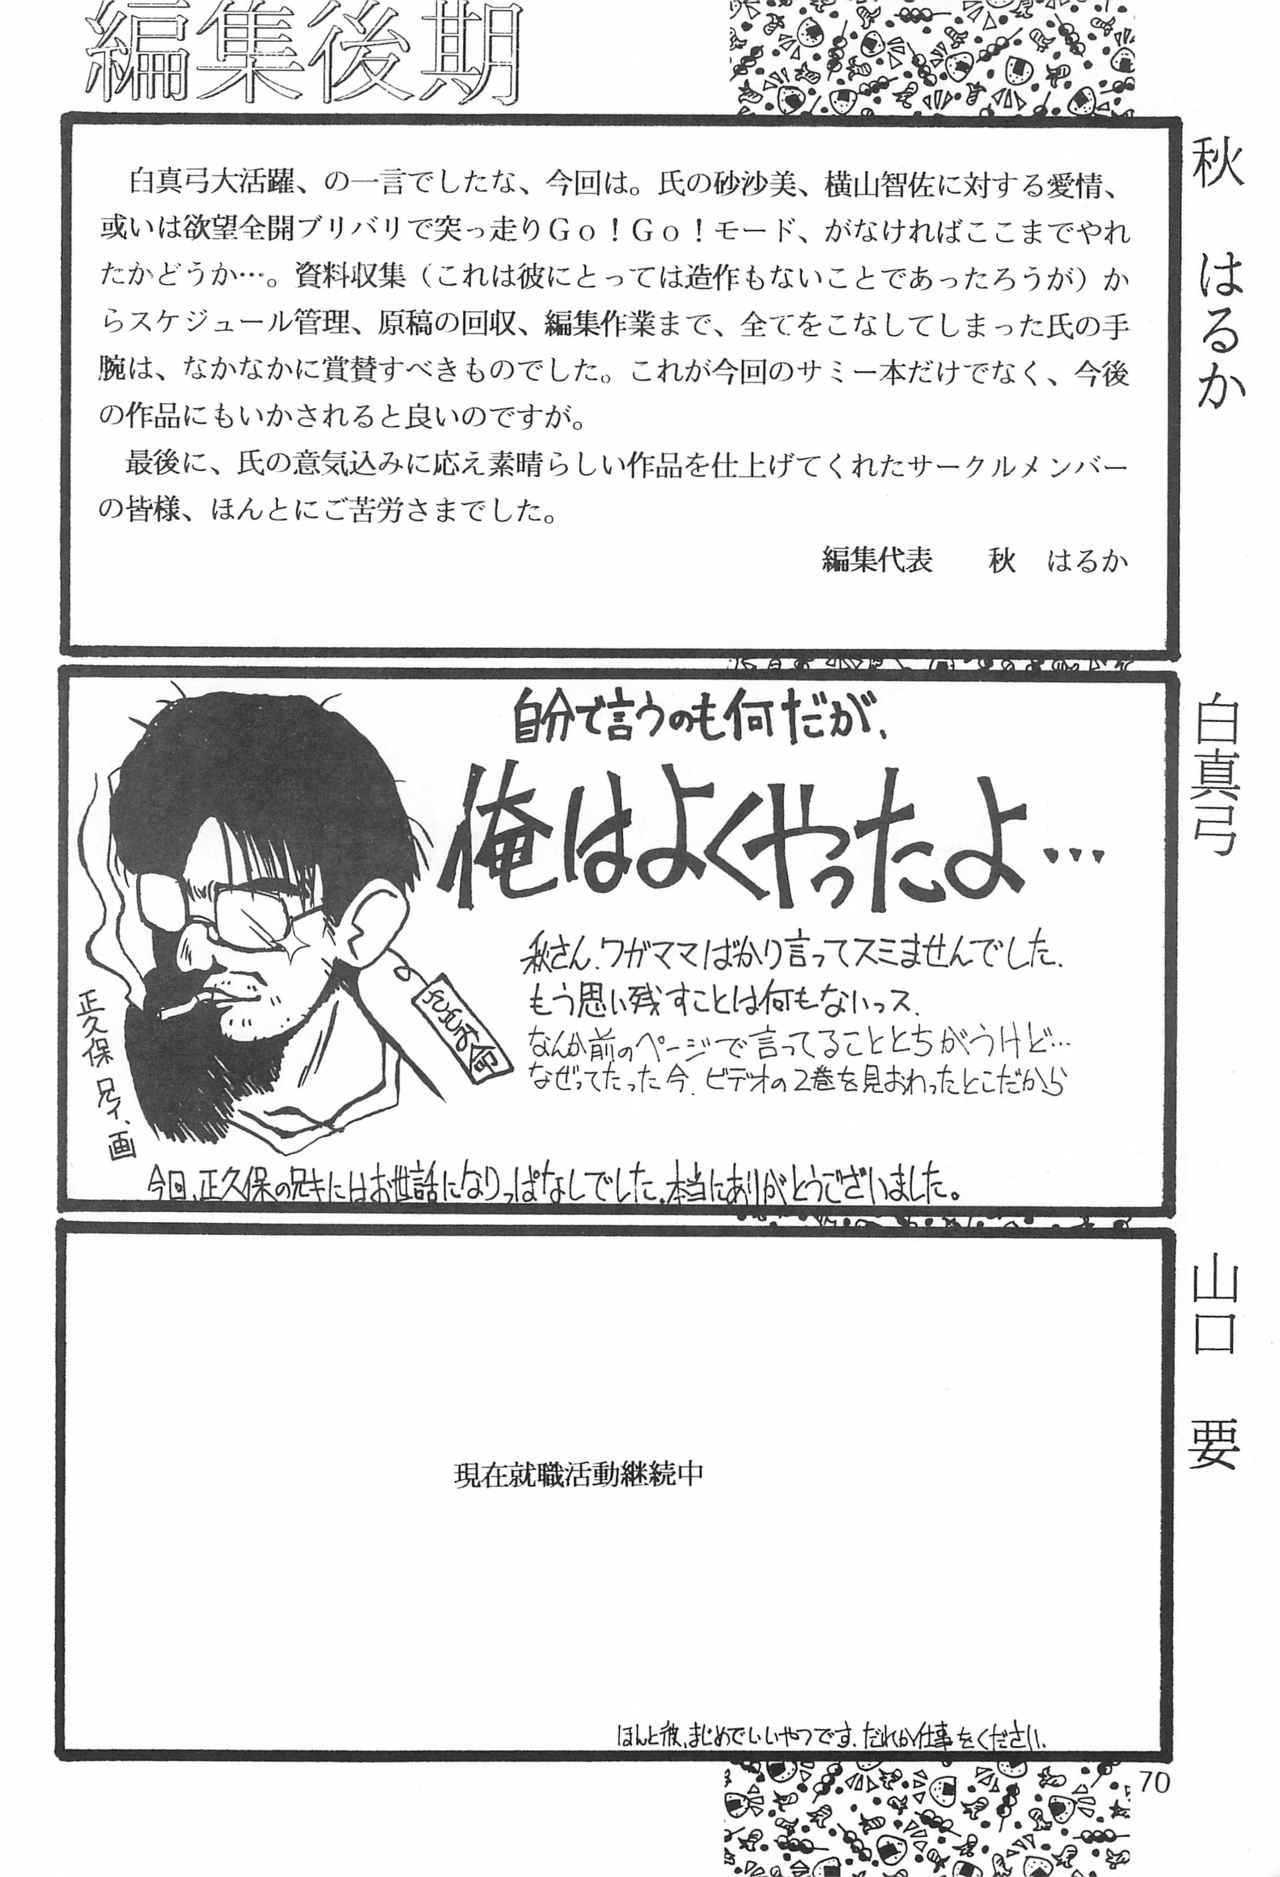 編集後期
秋 はるか
白真弓大活躍、の一言でしたな、今回は。氏の砂沙美、横山智佐に対する愛情、
或いは欲望全開ブリバリで突っ走りGo!Go!モード、がなければここまでやれ
たかどうか…。資料収集(これは彼にとっては造作もないことであったろうが)か
らスケジュール管理、原稿の回収、編集作業まで、全てをこなしてしまった氏の手
腕は、なかなかに賞賛すべきものでした。これが今回のサミー本だけでなく、今後
の作品にもいかされると良いのですが。
最後に、氏の意気込みに応え素晴らしい作品を仕上げてくれたサークルメンバー
の皆様、ほんとにご苦労さまでした。
編集代表 秋 はるか
白真弓
自分で言うのも何だが、
俺はよくやったよ…
秋さん、ワガママばかり言ってスミませんでした。
もう思い残すことは何もないっス。
なんか前のページで言ってることとちがうけど…
なぜってたった今、ビデオの2巻を見おわったとこだから
正久保 兄イ、画
今回、正久保の兄キにはお世話になりっぱなしでした。本当にありがとうございました。
山口 要
現在就職活動継続中
ほんと彼、まじめでいいやつです。だれか仕事をください。
70